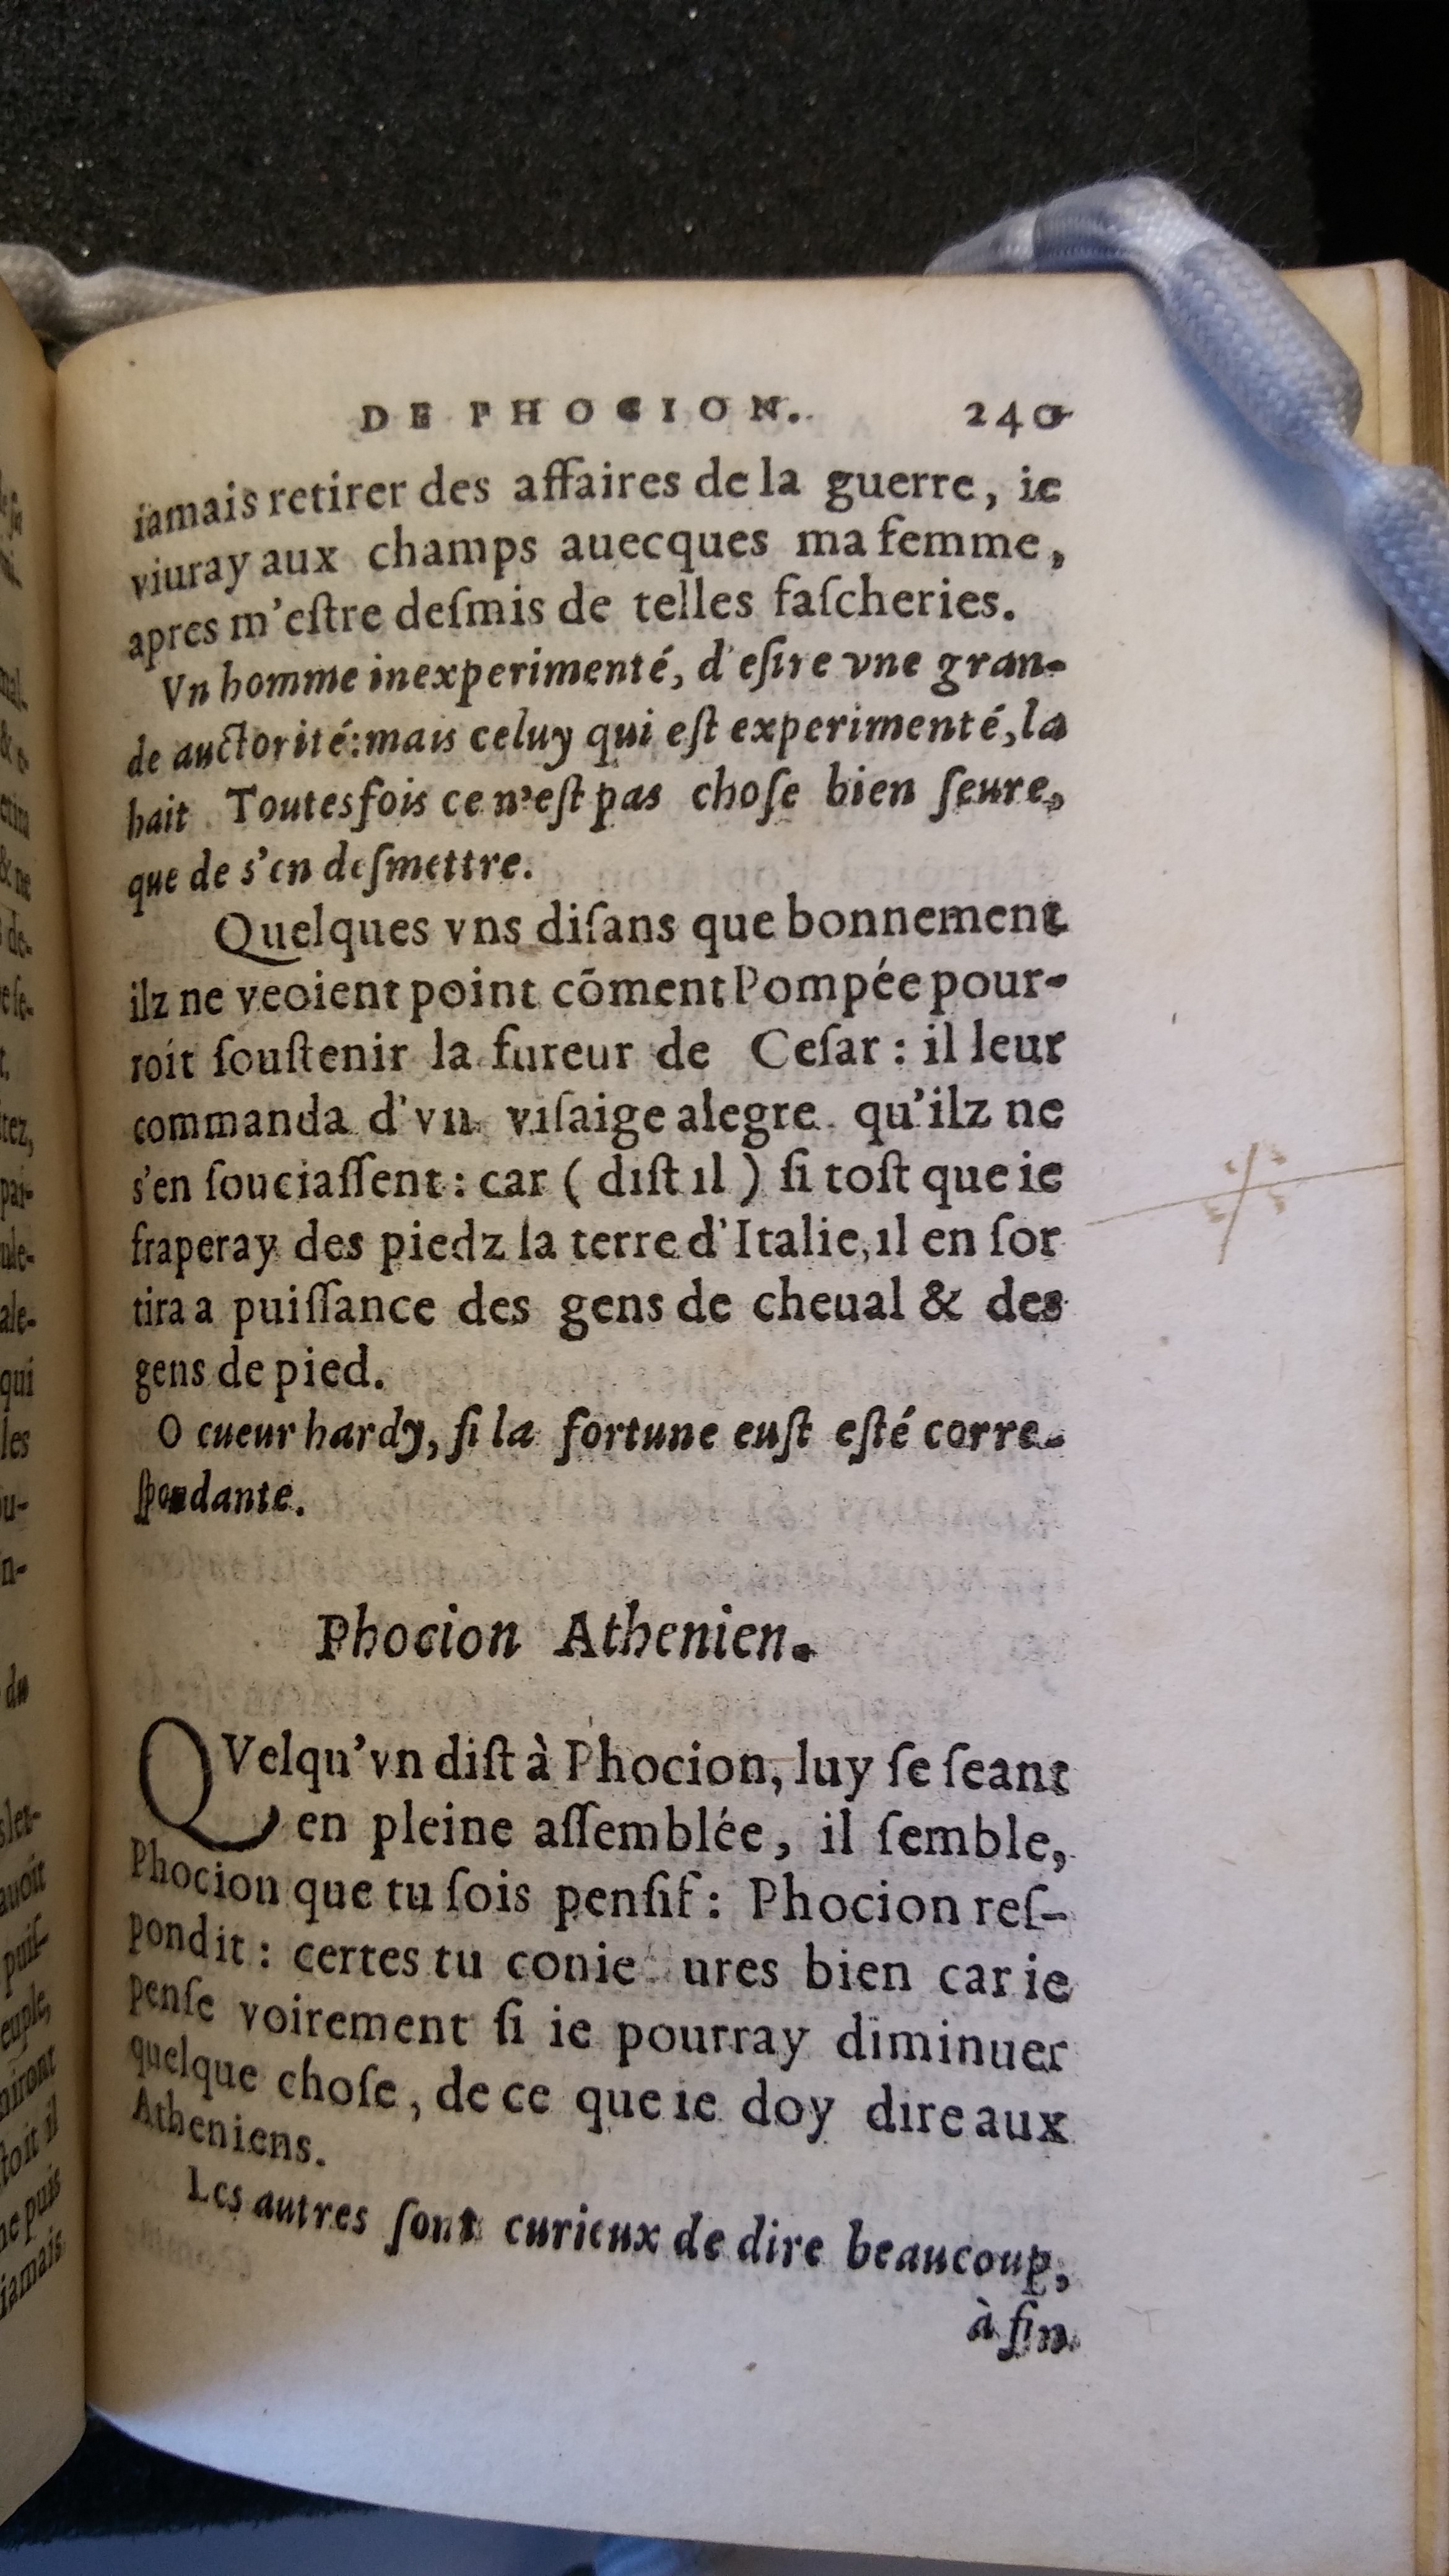 DE PHOCION. 240
iamais retirer des affaires de la guerre, ie
viuray aux champs auecques ma femme,
apres m'eſtre deſmis de telles faſcheries.
Vn homme inexperimenté, d'eſire vne gran-
de auctorité: mais celuy qui eſt experimenté, la
hait. Toutesfois ce n'eſt pas choſe bien ſeure,
que de s'en deſmettre.
Quelques vns diſans que bonnement
ilz ne veoient point cōment Pompée pour-
roit ſouſtenir la fureur de Ceſar: il leur
commanda d'vn viſaige alegre qu'ilz ne
s'en ſouciaſſent: car ( diſt il ) ſi toſt que ie
fraperay des piedz la terre d'Italie, il en ſor
tira a puiſſance des gens de cheual & des
gens de pied.
O cueur hardy, ſi la fortune euſt eſté corre-
ſpondante.
Phocion Athenien.
QVelqu'vn diſt à Phocion, luy ſe ſeant
en pleine aſſemblée, il ſemble,
Phocion que tu ſois penſif: Phocion reſ-
pondit: certes tu conie ures bien car ie
penſe voirement ſi ie pourray diminuer
quelque choſe, de ce que ie doy dire aux
Atheniens.
Les autres ſont curieux de dire beaucoup,
à fin